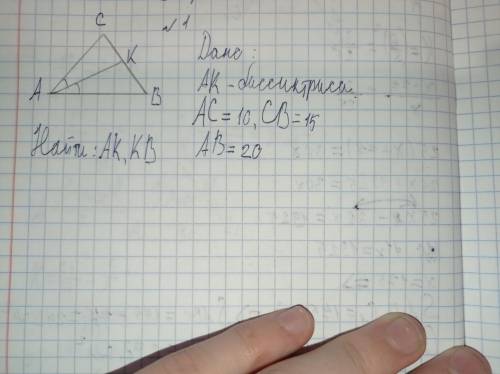 №1
C
K
A
B
Дано:
AK - биссиктриса
AC = 10, CB = 15
AB = 20
Найти: AK, KB